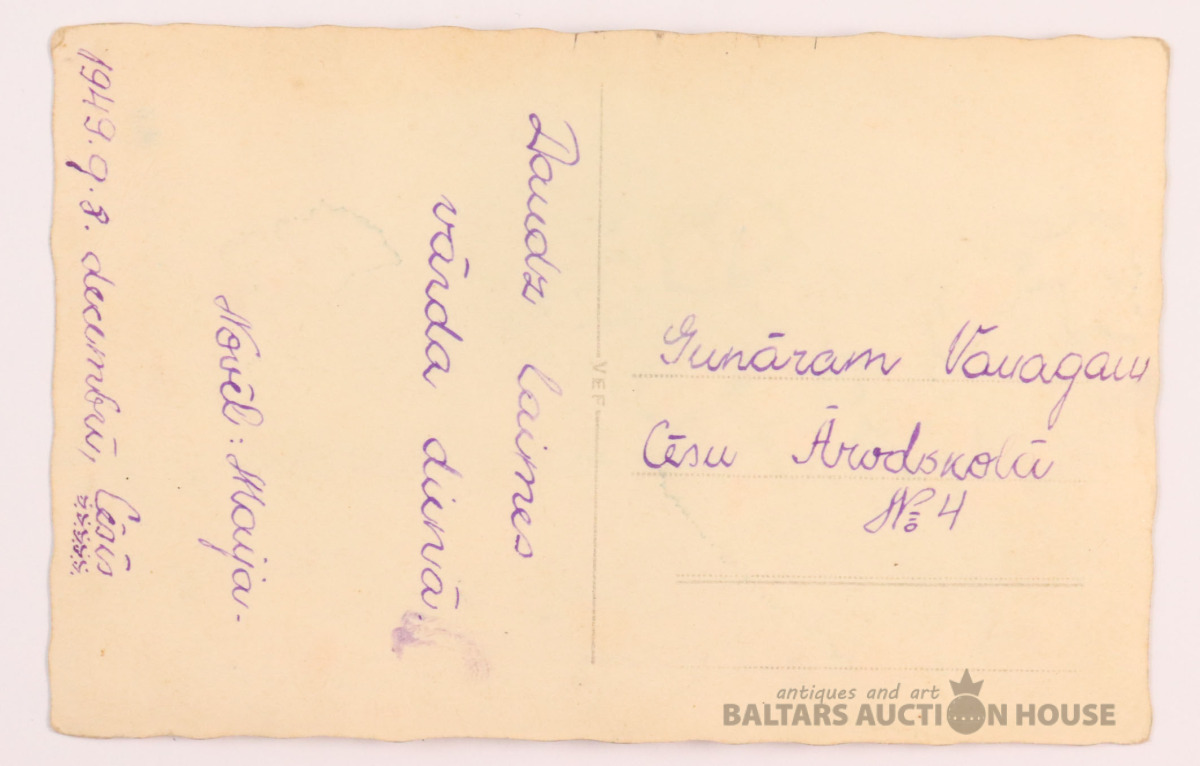 Daudz laimes
vārda dienā.
Novēl: Maija.
1949. g. 8. decembrī, Cēsīs
VEF
Gunāram Vanagam
Cēsu Ārodskolā
№ 4
antiques and art
BALTARS AUCTION HOUSE